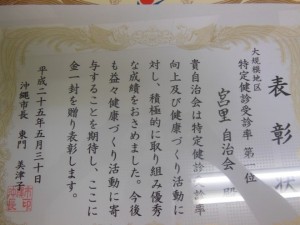 表彰状
大規模地区
特定健診受診率 第一位
宮里 自治会 殿
貴自治会は特定健診受診率
向上及び健康づくり活動に
対し、積極的に取り組み優秀
な成績をおさめました。今後
も益々健康づくり活動に寄
与することを期待し、ここに
金一封を贈り表彰します。
平成二十五年五月三十日
沖縄市長 東門 美津子